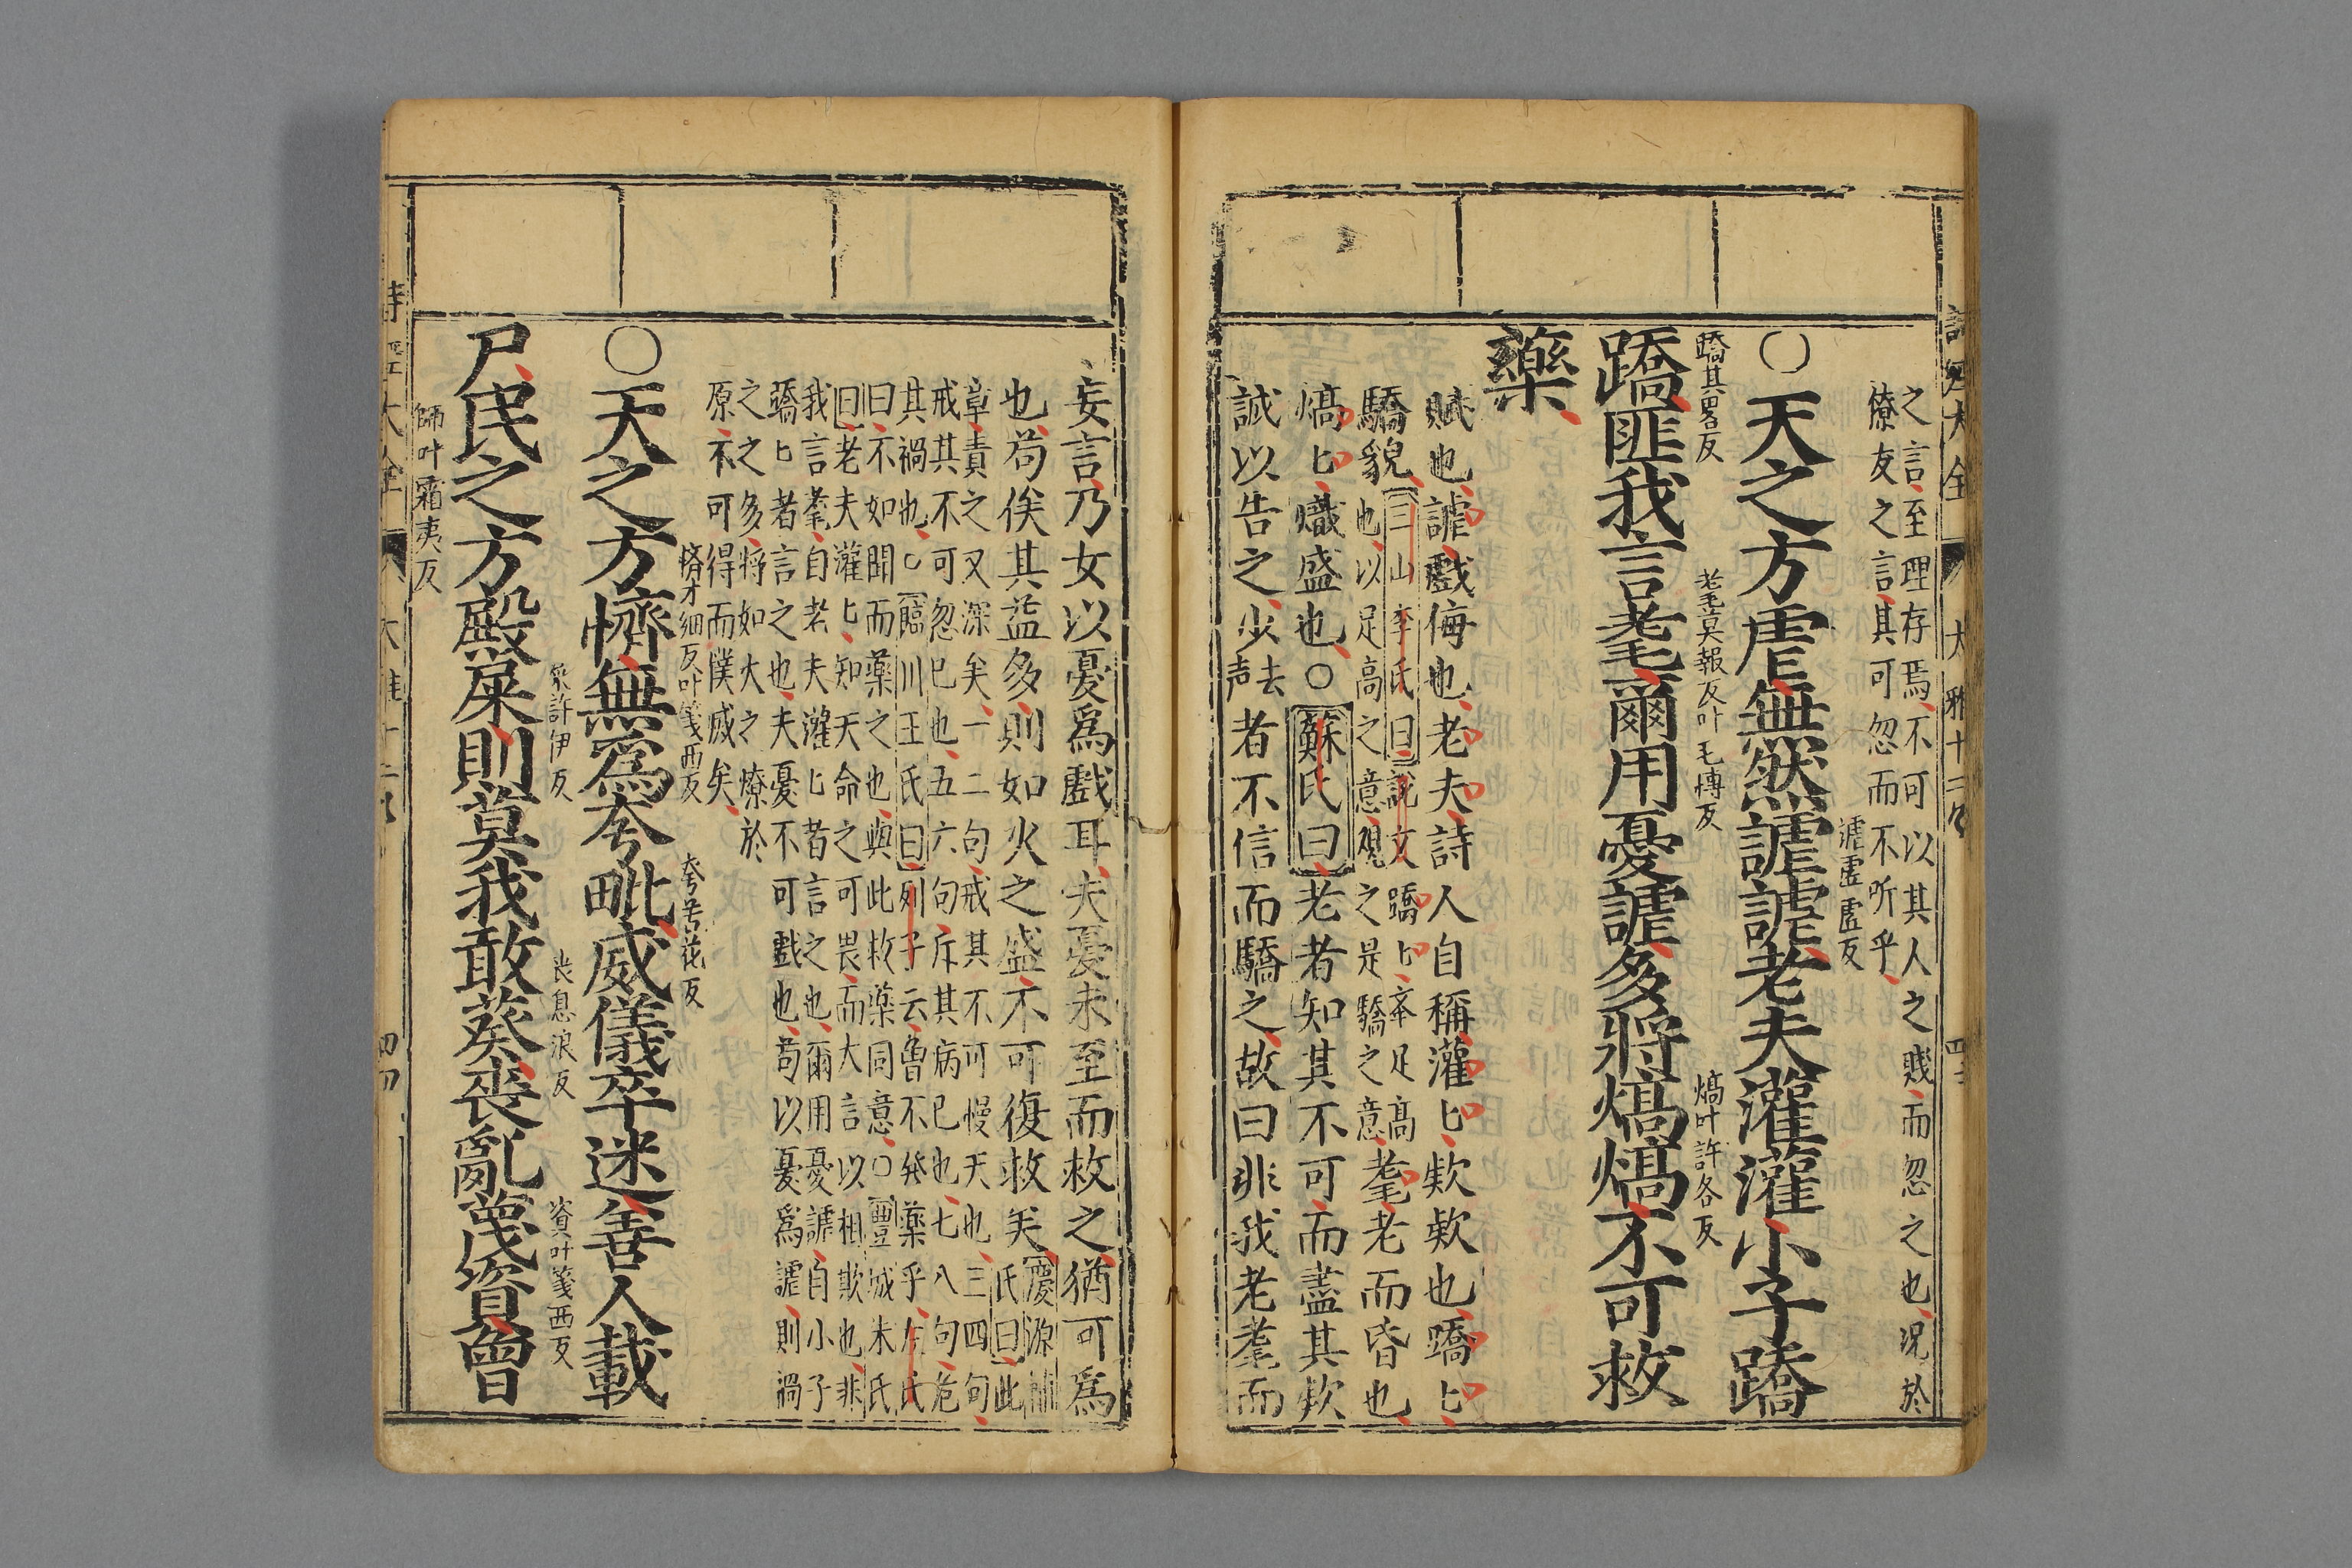 之言至理存焉不可以其人之賤而忽之也況於
僚友之言其可忽而不听乎
謔虛虐反
〇天之方虐無然謔謔老夫灌灌小子蹻
蹻其畧反
耄莫報反叶毛博反
熇叶許各反
蹻匪我言耄爾用憂謔多將熇熇不可救
藥
賦也謔戲侮也老夫詩人自稱灌〻欵欵也蹻〻
驕貌
三山李氏曰說文蹻〻舉足高
也以足高之意觀之是驕之意
耄老而昏也
熇〻熾盛也〇蘇氏曰老者知其不可而盡其欵
誠以告之少
去声
者不信而驕之故曰非我老耄而
妄言乃女以憂爲戲耳夫憂未至而救之猶可爲
也苟俟其益多則如火之盛不可復救矣
慶源輔
氏曰此
章責之又深矣一二句戒其不可慢天也三四句
戒其不可忽已也五六句斥其病已也七八句危
其禍也〇臨川王氏曰列子云魯不發藥乎左氏
曰不如聞而藥之也與此救藥同意〇豐城朱氏
曰老夫灌〻知天命之可畏而大言以相欺也非
我言耄自老夫灌〻者言之也爾用憂謔自小子
蹻〻者言之也夫憂不可戲也苟以憂爲謔則禍
之之多將如大之燎於
原不可得而撲滅矣
懠才細反叶箋西反
夸苦花反
〇天之方懠無爲夸毗威儀卒迷善人載
屎許伊反
喪息浪反
資叶箋西反
尸民之方殿屎則莫我敢葵喪亂蔑資曾
師叶霜夷反